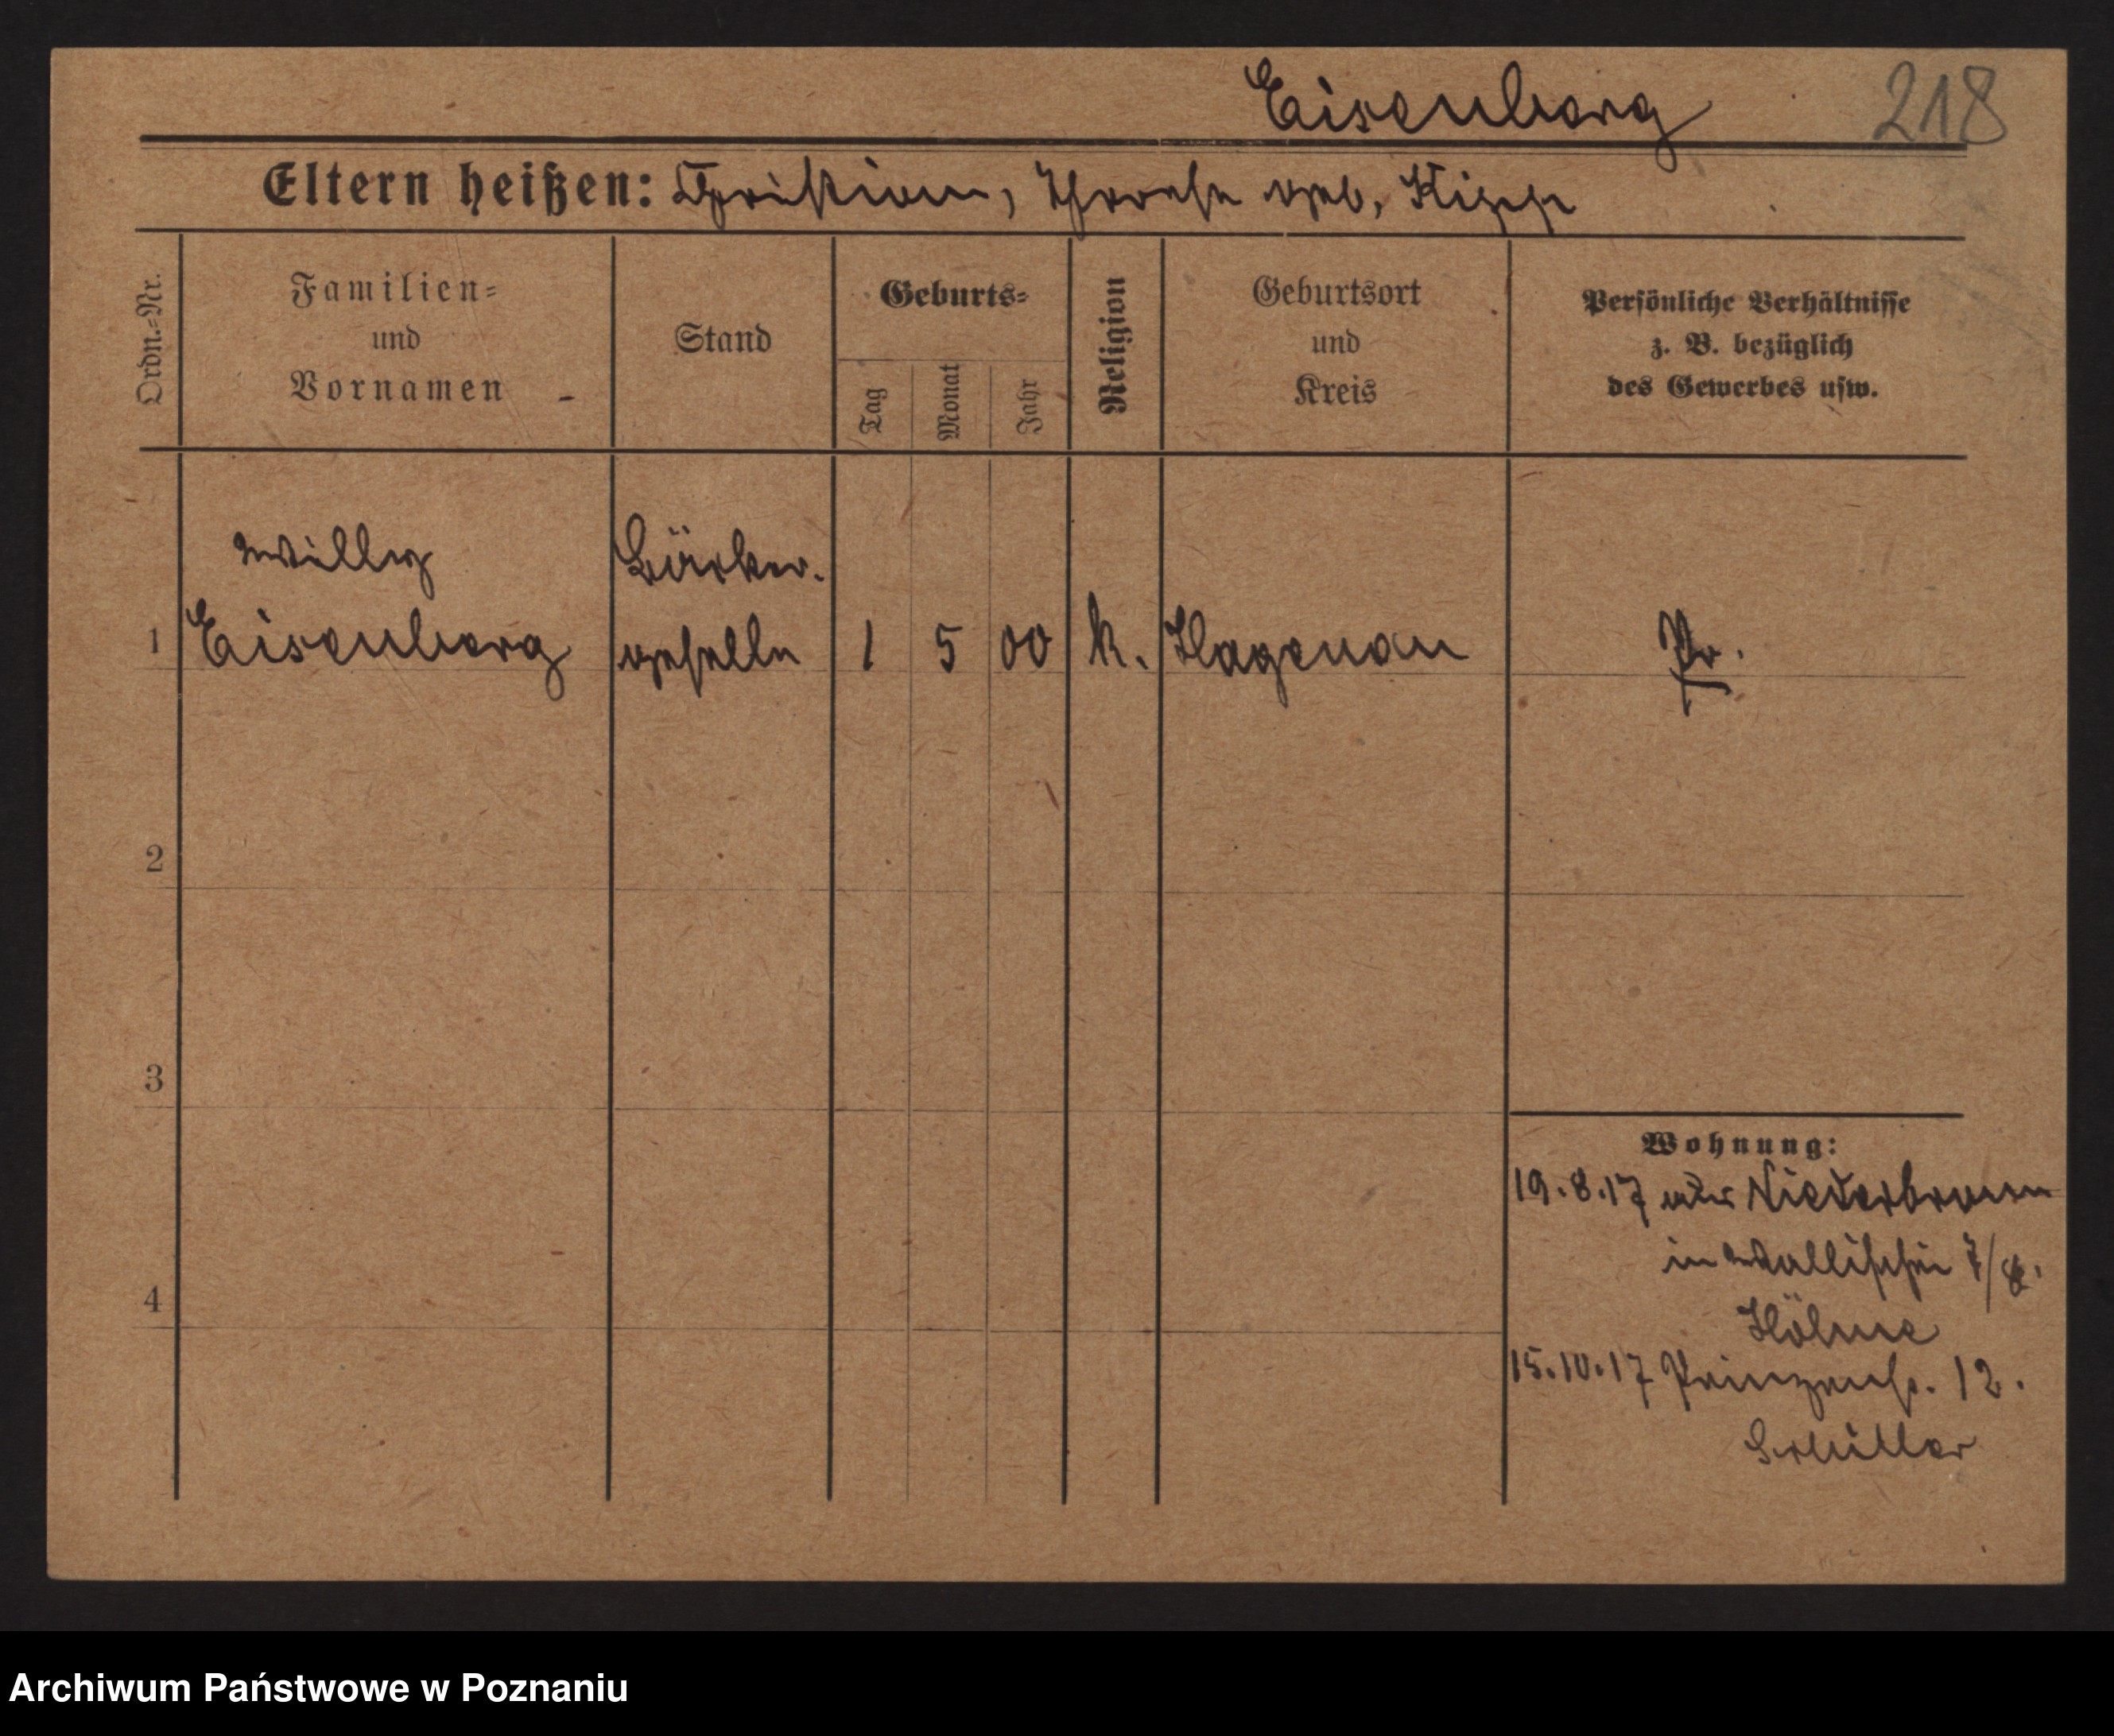 Eisenberg 218
Eltern heißen: Christian, Therese geb. Kipp
Ordn.-Nr.
Familien-
und
Vornamen
Stand
Geburts-
Tag
Monat
Jahr
Religion
Geburtsort
und
Kreis
Persönliche Verhältnisse
z. B. bezüglich
des Gewerbes usw.
Willy Bäcker.
1 Eisenberg geselle 1 5 00 k. Hagenau Pr.
2
3
4
Wohnung:
19.8.17 aus Niederbronn
in Wallischei 7/8.
15.10.17 Prinzenstr. 12.
Schiller
Archiwum Państwowe w Poznaniu